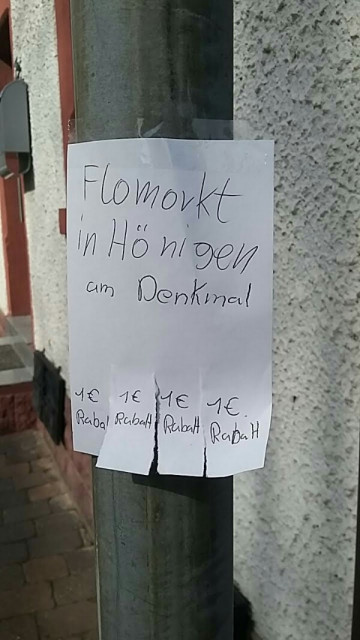 Flomarkt
in Hönigen
am Denkmal
1€ Rabatt
1€ Rabatt
1€ Rabatt
1€. Rabatt